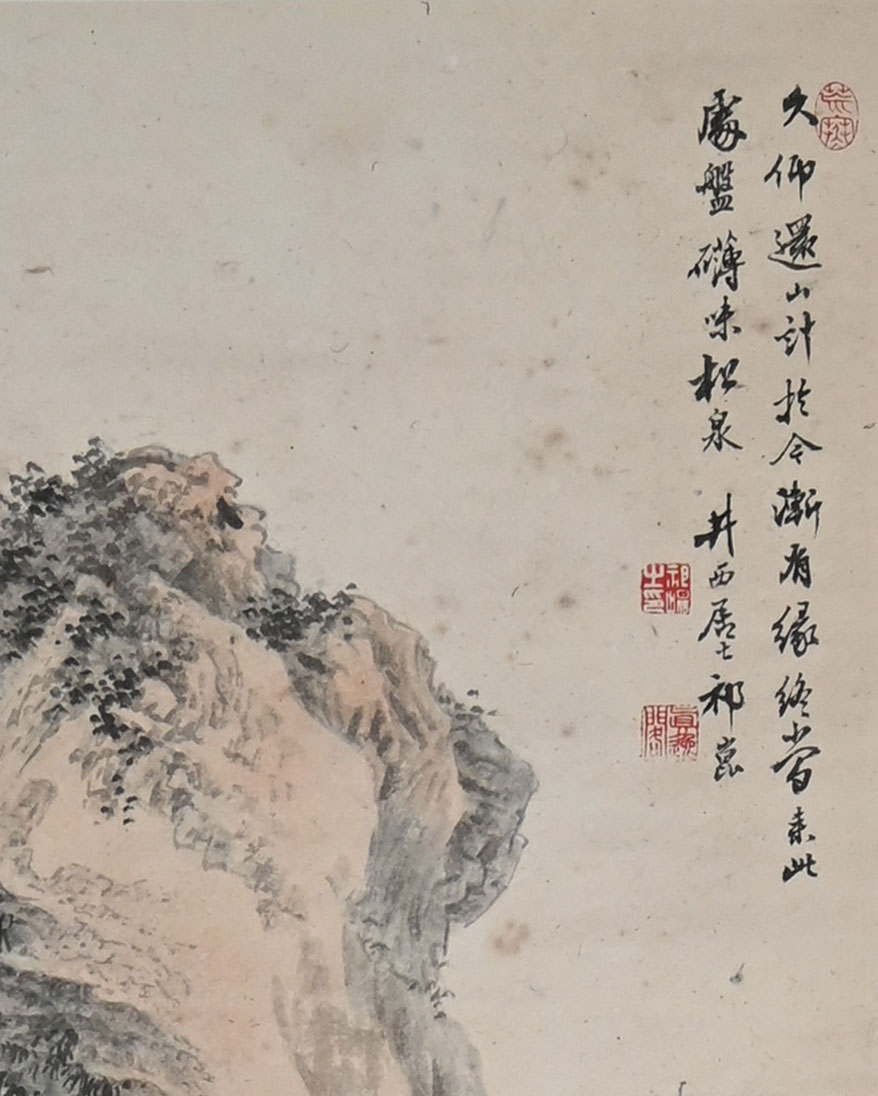 久仰還山計於今漸有緣終當来此
處盤礴味松泉 井西居士祁崑
祁崑之印